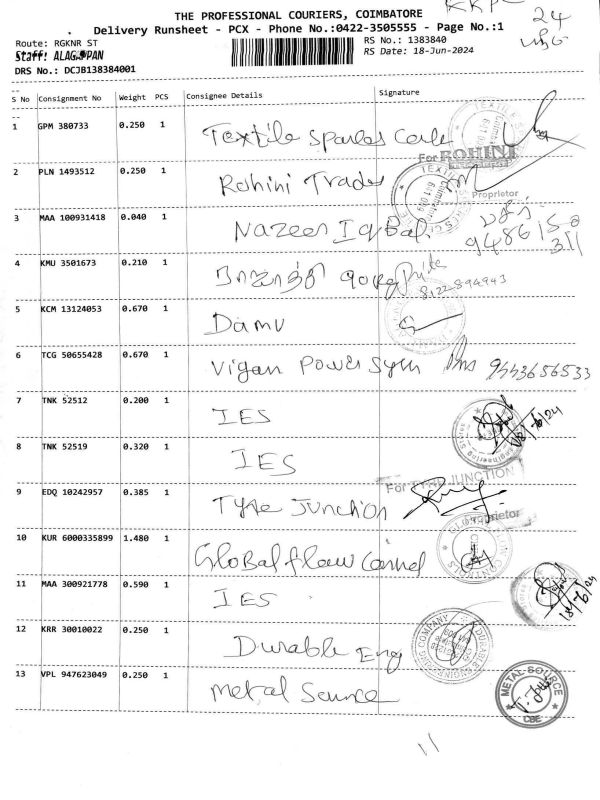 THE PROFESSIONAL COURIERS, COIMBATORE
Delivery Runsheet - PCX - Phone No.:0422-3505555 - Page No.:1
24
Route: RGKNR ST
RS No.: 1383840
Staff: ALAGAPPAN
RS Date: 18-Jun-2024
DRS No.: DCJB138384001
S No Consignment No Weight PCS Consignee Details Signature
1 GPM 380733 0.250 1 Textile Spares
For ROHINI
2 PLN 1493512 0.250 1 Rohini Trades
Proprietor
3 MAA 100931418 0.040 1 Nazeer Iqbal
4 KMU 3501673 0.210 1
8122894943
5 KCM 13124053 0.670 1 Damu
6 TCG 50655428 0.670 1 Vigan Power 9443656533
7 TNK 52512 0.200 1 IES
8 TNK 52519 0.320 1 IES
For TYRE JUNCTION
9 EDQ 10242957 0.385 1 Tyre Junction
Proprietor
10 KUR 6000335899 1.480 1 Global flow
11 MAA 300921778 0.590 1 IES
18/6/24
12 KRR 30010022 0.250 1 Durable Eng
13 VPL 947623049 0.250 1 Metal Source
METAL SOURCE
CBE
11